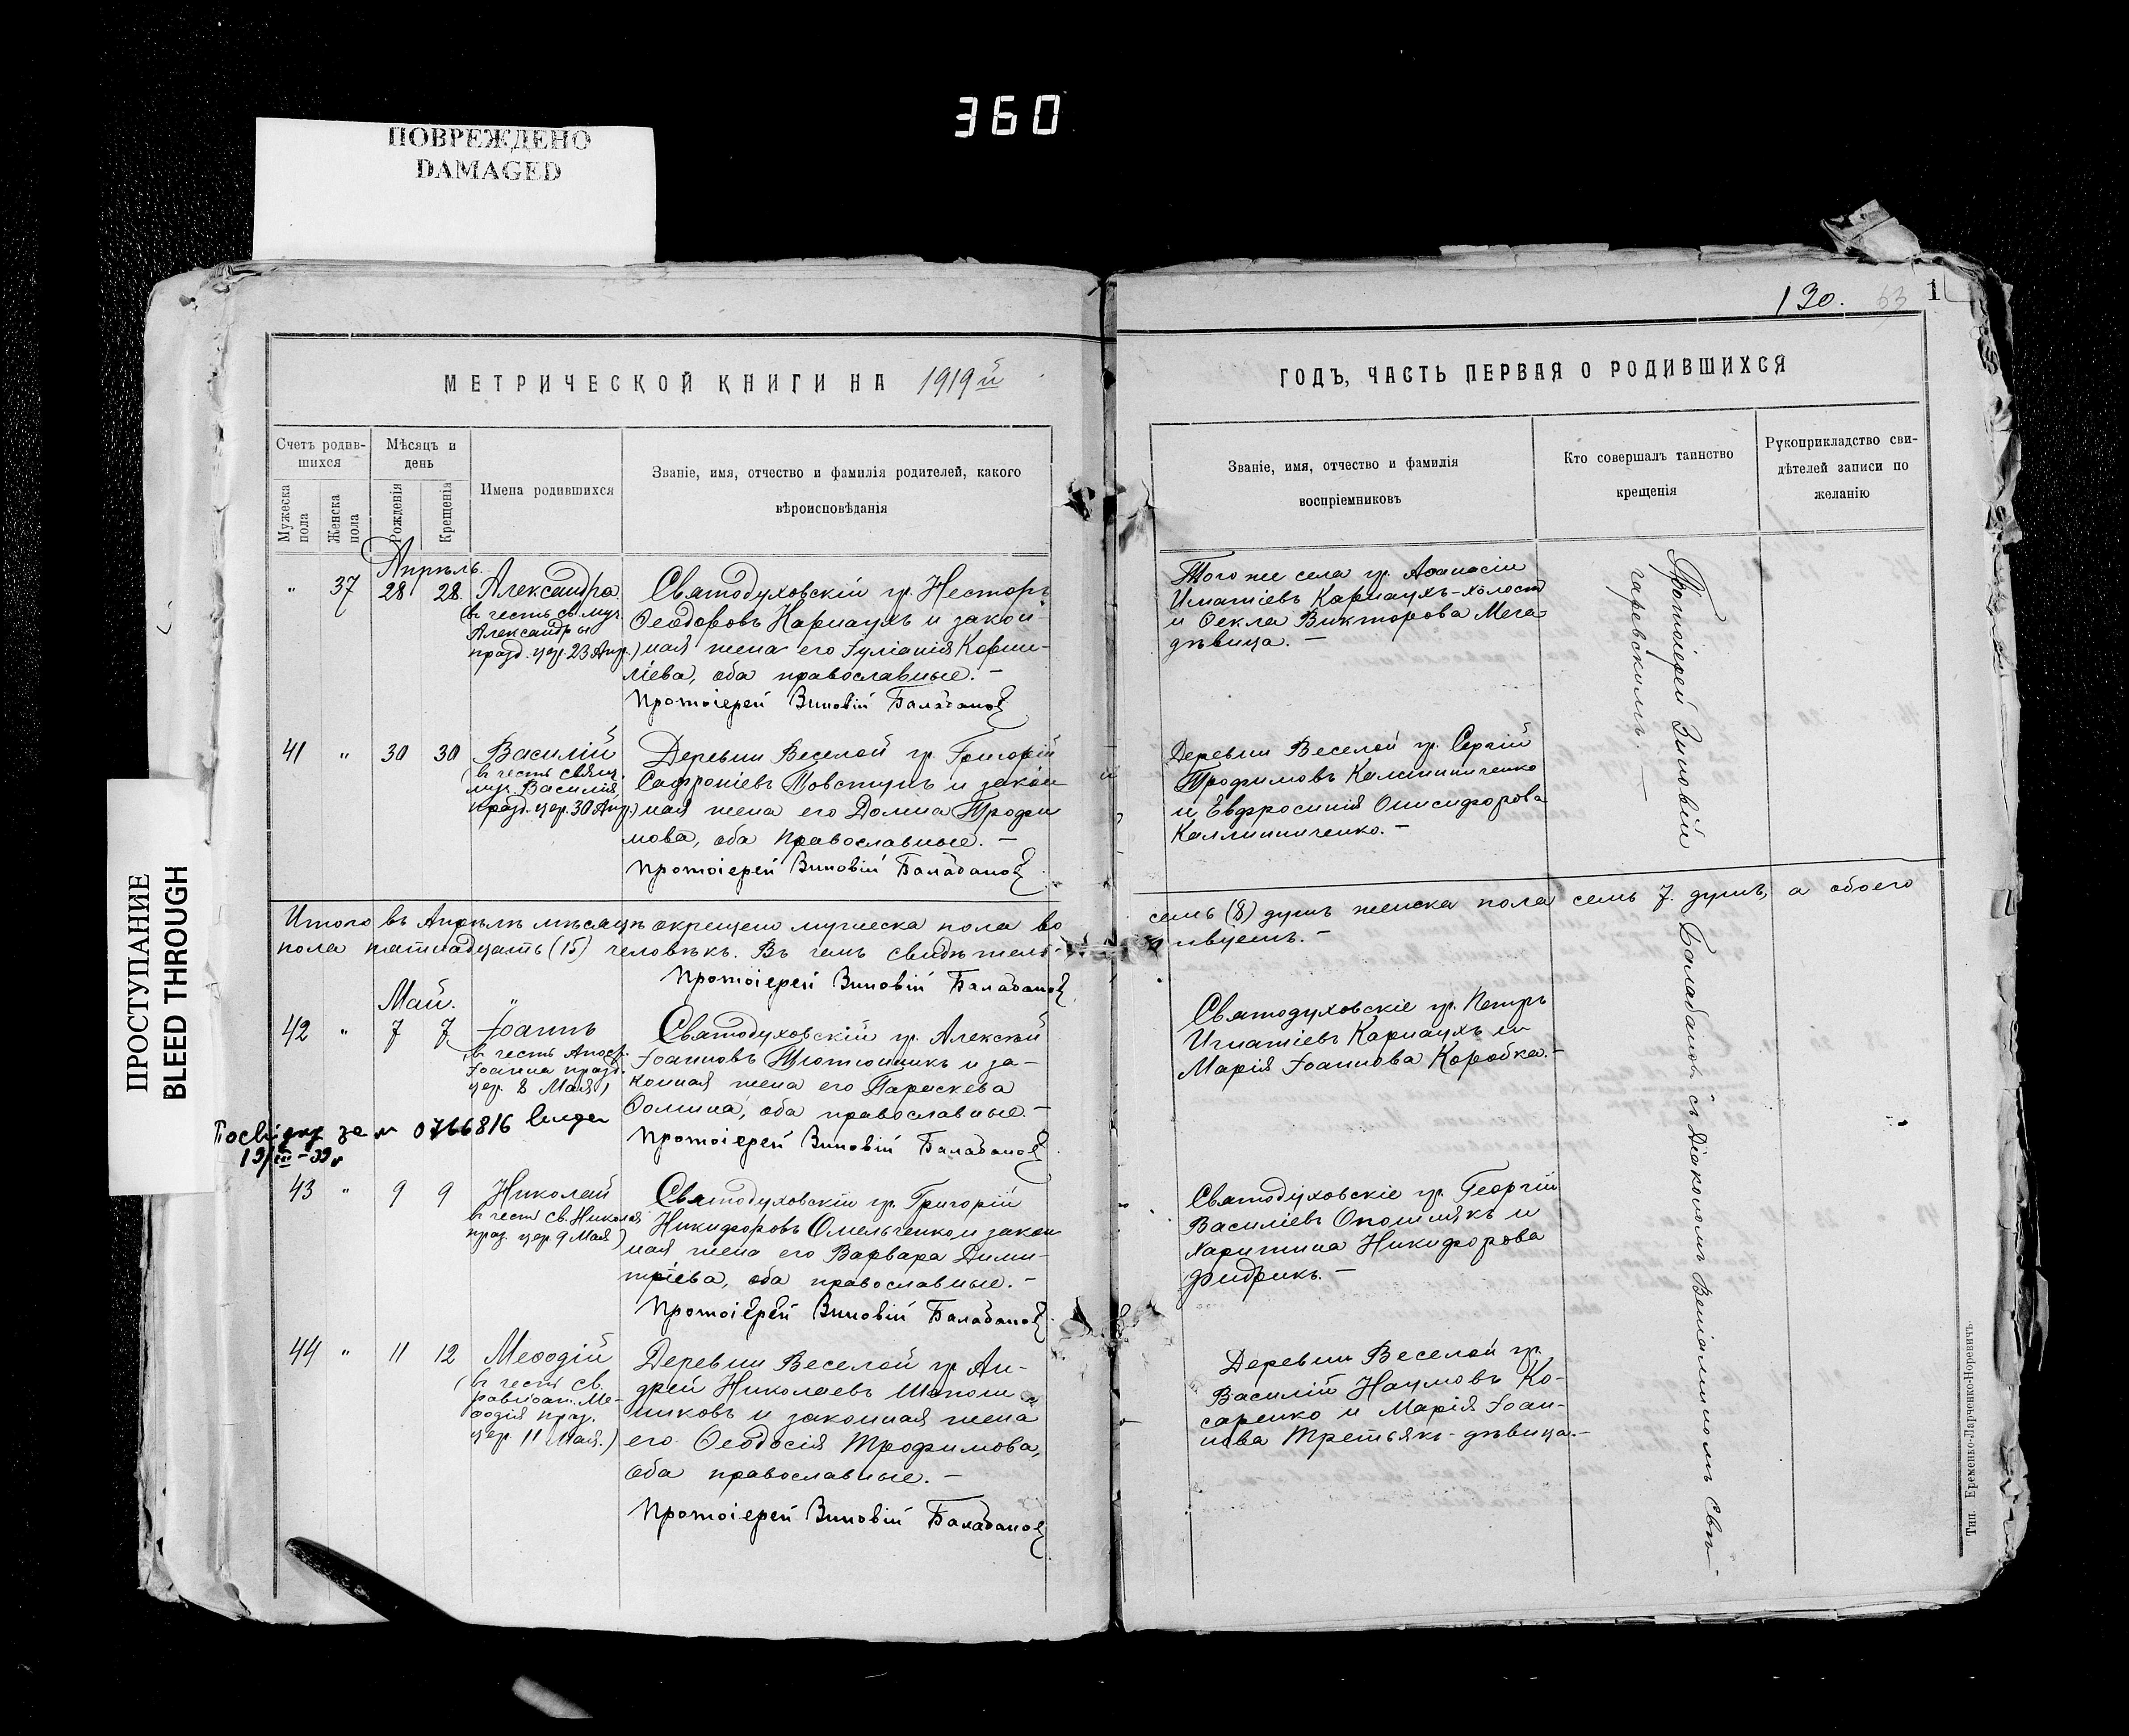 360
ПОВРЕЖДЕНО
DAMAGED
ПРОСТУПАНИЕ
BLEED THROUGH
130.
63
1
МЕТРИЧЕСКОЙ КНИГИ НА 1919й
ГОДЪ, ЧАСТЬ ПЕРВАЯ О РОДИВШИХСЯ
Счетъ родив-
шихся
Мужеска пола
Женска пола
Мѣсяцъ и
день
Рожденія
Крещенія
Имена родившихся
Званіе, имя, отчество и фамилія родителей, какого
вѣроисповѣданія
Званіе, имя, отчество и фамилія
воспріемниковъ
Кто совершалъ таинство
крещенія
Рукоприкладство сви-
дѣтелей записи по
желанію
Апрѣль
" 37 28 28 Александра
(въ честь св. муч.
Александры
празд. цер. 23 Апр.)
Святодуховскій гр. Несторъ
Ѳеодоровъ Карнаухъ и закон-
ная жена его Іуліанія Корни-
ліева, оба православные. —
Протоіерей Зиновій Балабановъ
Того же села гр. Аѳанасій
Игнатіевъ Карнаухъ-холост
и Ѳекла Викторова Мега-
дѣвица. —
41 " 30 30 Василій
(въ честь свящ.
муч. Василія
празд. цер. 30 Апр.)
Деревни Веселой гр. Григорій
Сафроніевъ Товступъ и закон
ная жена его Домна Трофи
мова, оба православные. —
Протоіерей Зиновій Балабановъ
Деревни Веселой гр. Сергій
Трофимовъ Калиниченко
и Евфросинія Онисифорова
Каллиниченко. —
Итого въ Апрѣлѣ мѣсяцѣ окрещено мужеска пола во
семь (8) душъ женска пола семь 7. душъ, а обоего
пола пятнадцать (15) человѣкъ. Въ чемъ свидѣтель-
ствуемъ. —
Протоіерей Зиновій Балабановъ
Май.
42 " 7 7 Іоаннъ
(въ честь Апост.
Іоанна празд.
цер. 8 Мая)
Святодуховскій гр. Алексѣй
Іоанновъ Тютюнникъ и за-
конная жена его Параскева
Ѳомина, оба православные. —
Протоіерей Зиновій Балабановъ
Святодуховскіе гр. Петръ
Игнатіевъ Карнаухъ и
Марія Іоаннова Коробка. —
0766816
43 " 9 9 Николай
въ честь св. Николая
праз. цер. 9 Мая)
Святодуховскій гр. Григорій
Никифоровъ Омельченко и закон
ная жена его Варвара Дими-
тріева, оба православные. —
Протоіерей Зиновій Балабановъ
Святодуховскіе гр. Георгій
Василіевъ Опошнякъ и
Харитина Никифорова
Фидрикъ. —
44 " 11 12 Меѳодій
(въ честь св.
равноап. Ме-
ѳодія праз.
цер. 11 Мая.)
Деревни Веселой гр. Ан-
дрей Николаевъ Шапош
никовъ и законная жена
его Ѳеодосія Трофимова,
оба православные. —
Протоіерей Зиновій Балабановъ
Деревни Веселой гр.
Василій Наумовъ Ко-
саренко и Марія Іоан-
нова Третьякъ-дѣвица. —
Протоіерей Зиновій Балабановъ съ Діакономъ Веніаминомъ Свѣ-
Тип. Еременко-Ларченко-Норевичъ.